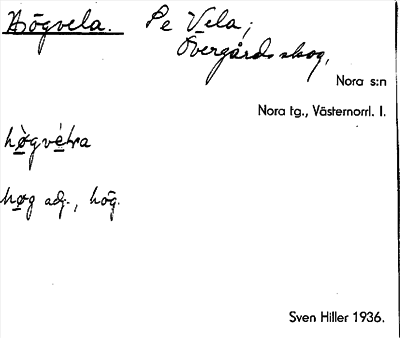 Högvela. Se Vela;
Övergårds skog,
Nora s:n
Nora tg., Västernorrl. l.
hog adj., hög.
Sven Hiller 1936.